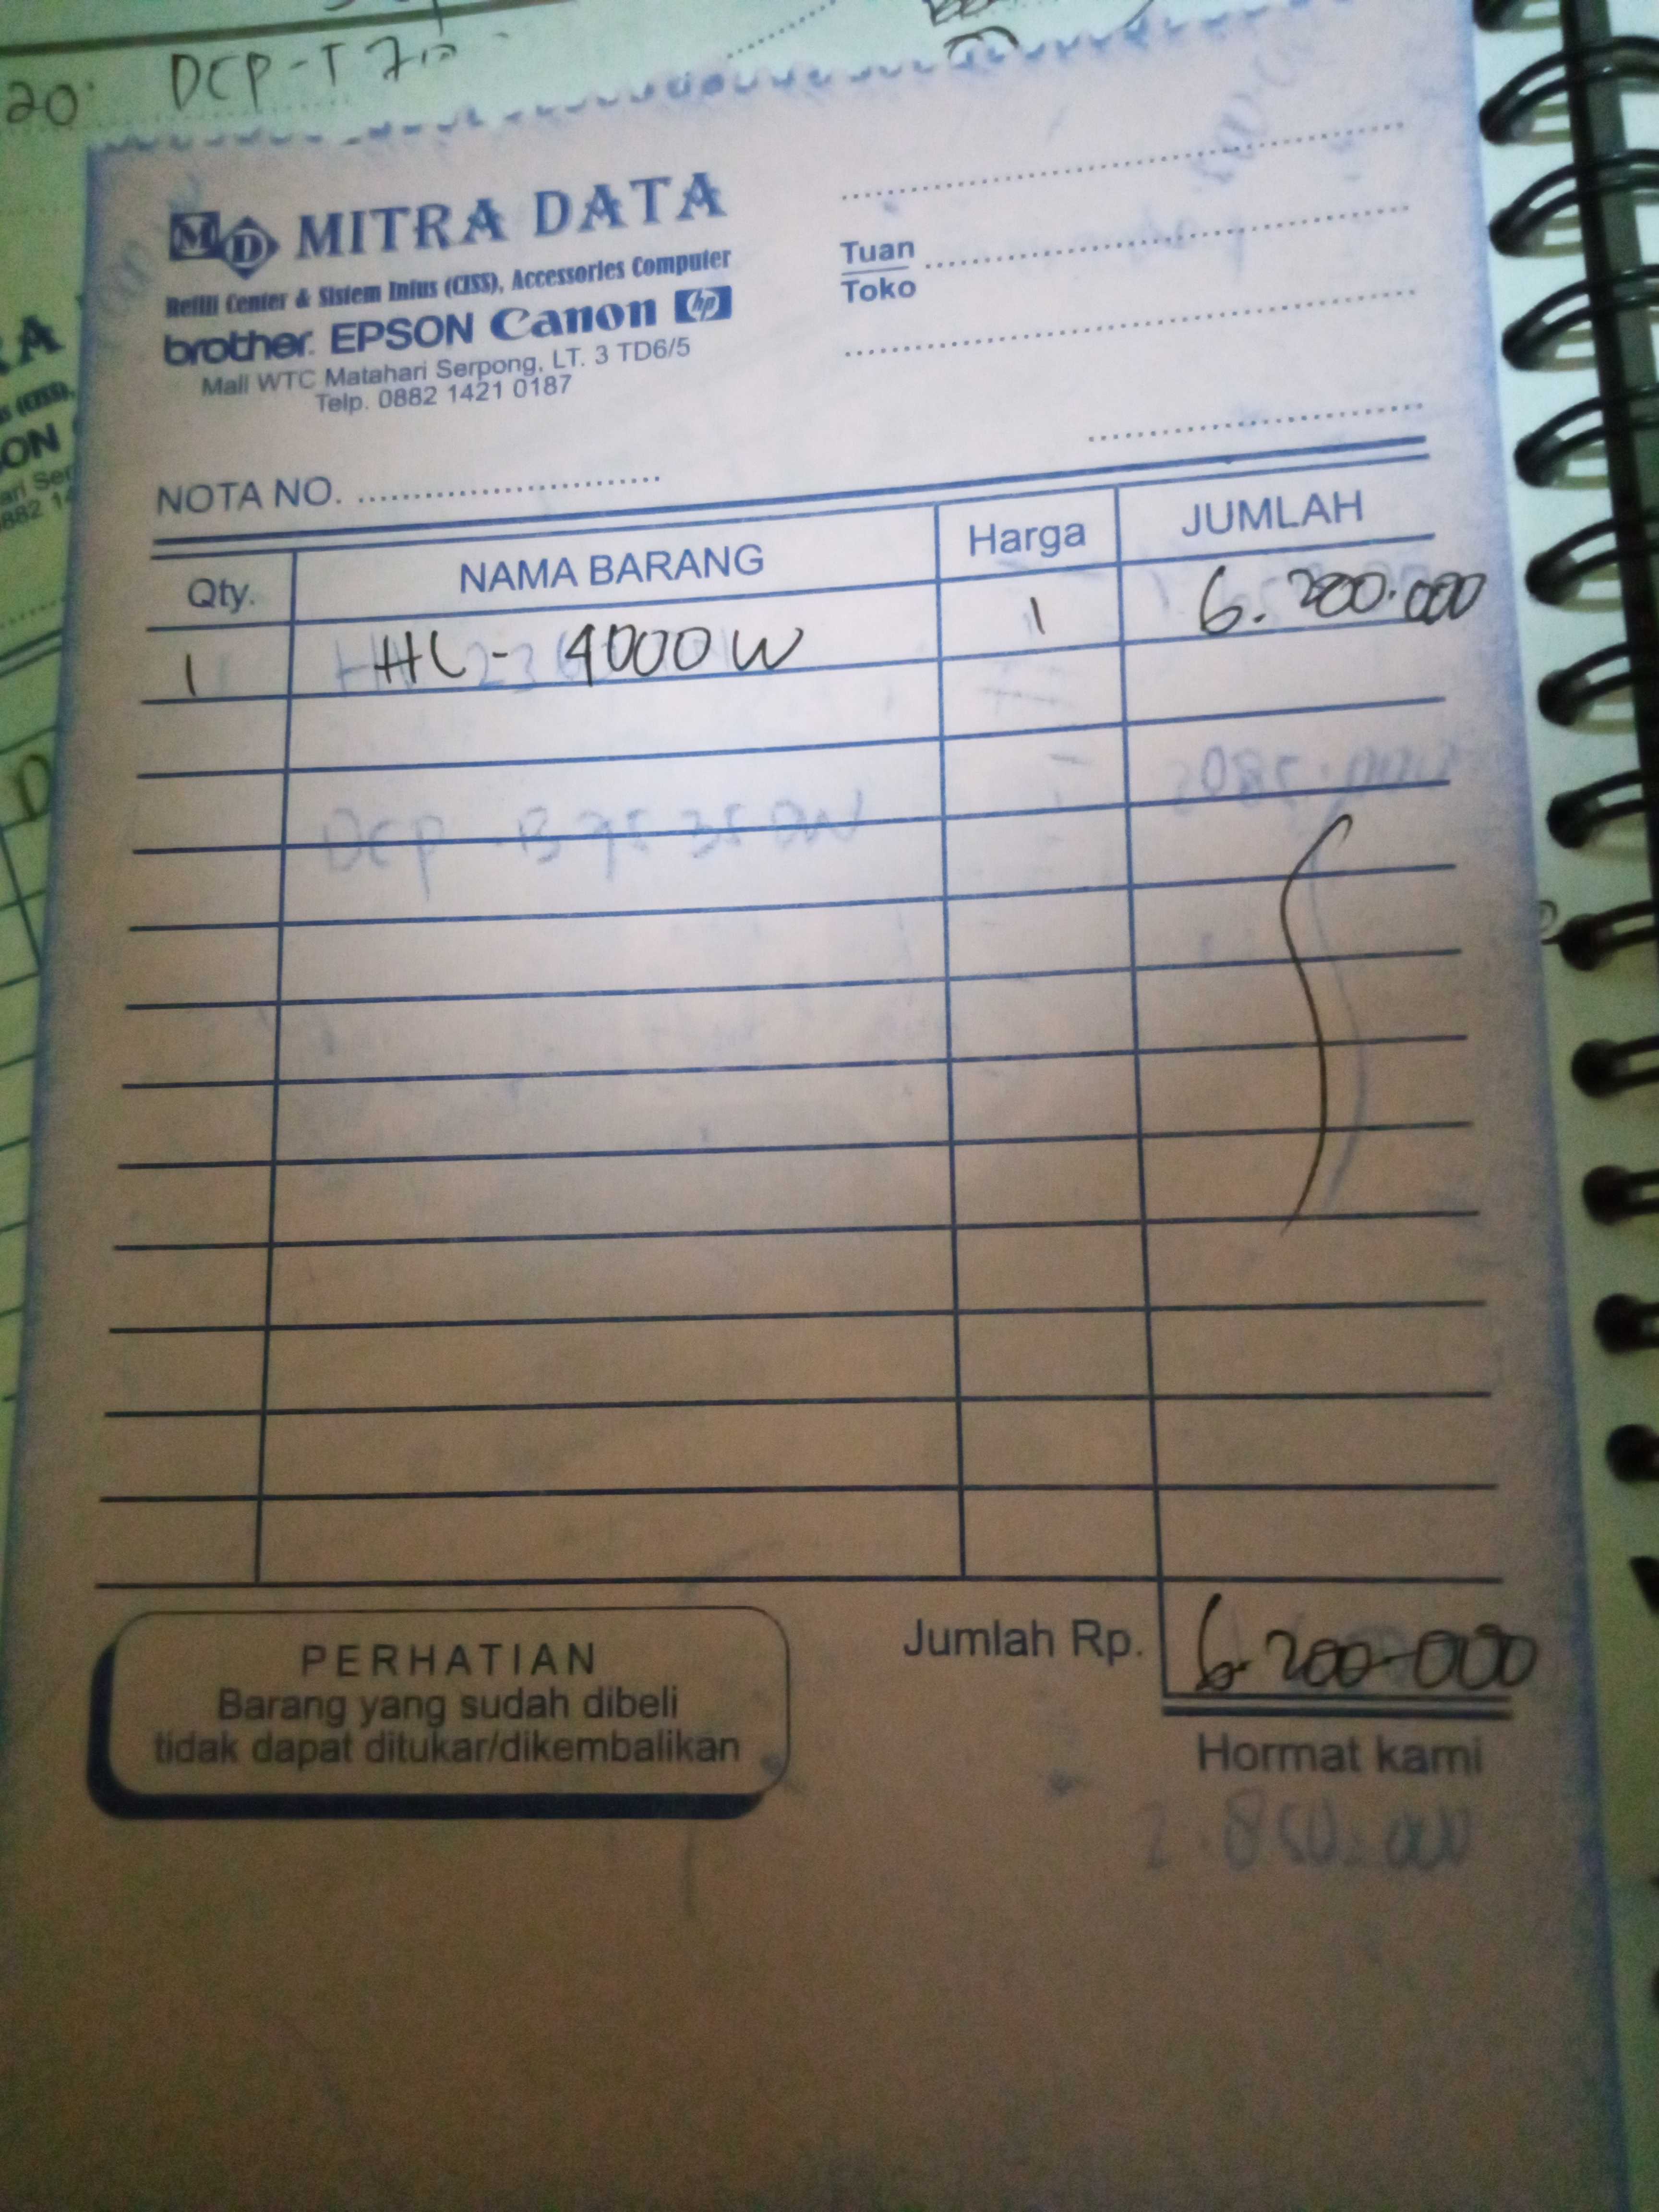 20. DCP-T
MD MITRA DATA
Refill Center & Sistem Infus (CISS), Accessories Computer
brother. EPSON Canon hp
Mall WTC Matahari Serpong, LT. 3 TD6/5
Telp. 0882 1421 0187
Tuan
Toko
NOTA NO.
Qty. NAMA BARANG Harga JUMLAH
1 HL- 4000 W 1 6.200.000
Jumlah Rp. 6.200.000
PERHATIAN
Barang yang sudah dibeli
tidak dapat ditukar/dikembalikan
Hormat kami